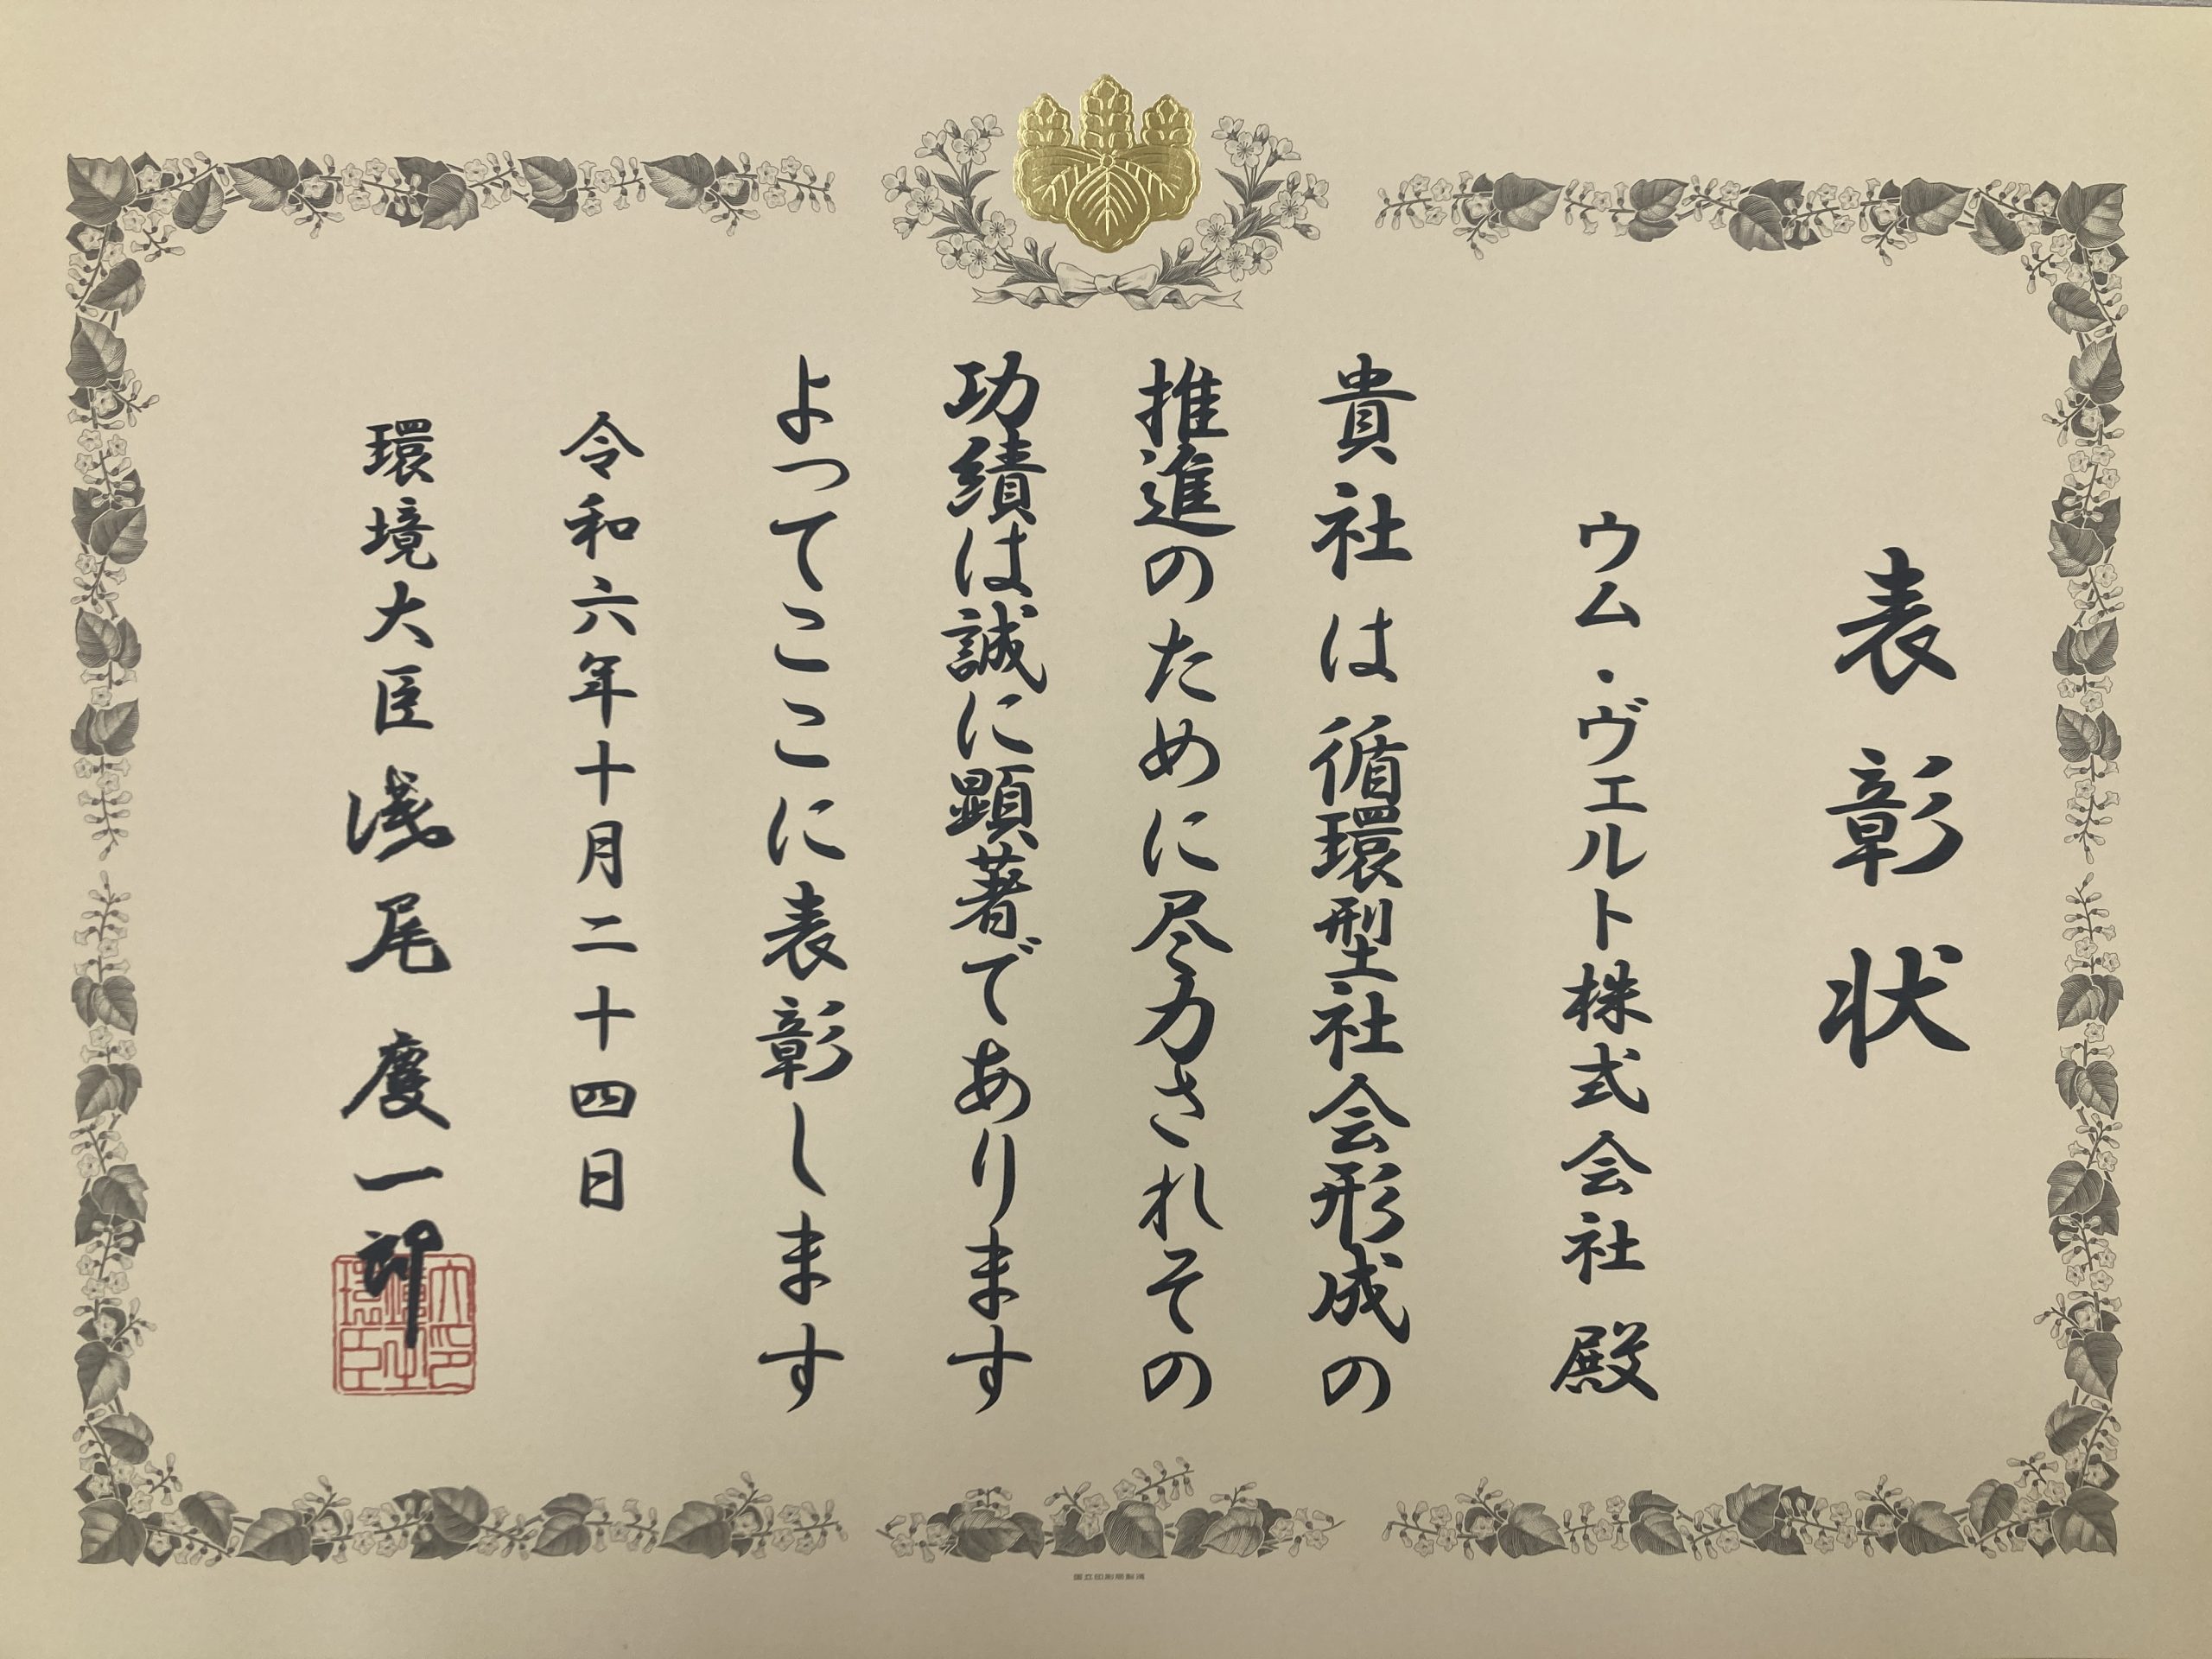 表彰状
ウム・ヴェルト株式会社 殿
貴社は循環型社会形成の
推進のために尽力されその
功績は誠に顕著であります
よってここに表彰します
令和六年十月二十四日
環境大臣 浅尾慶一郎
国立印刷局製造